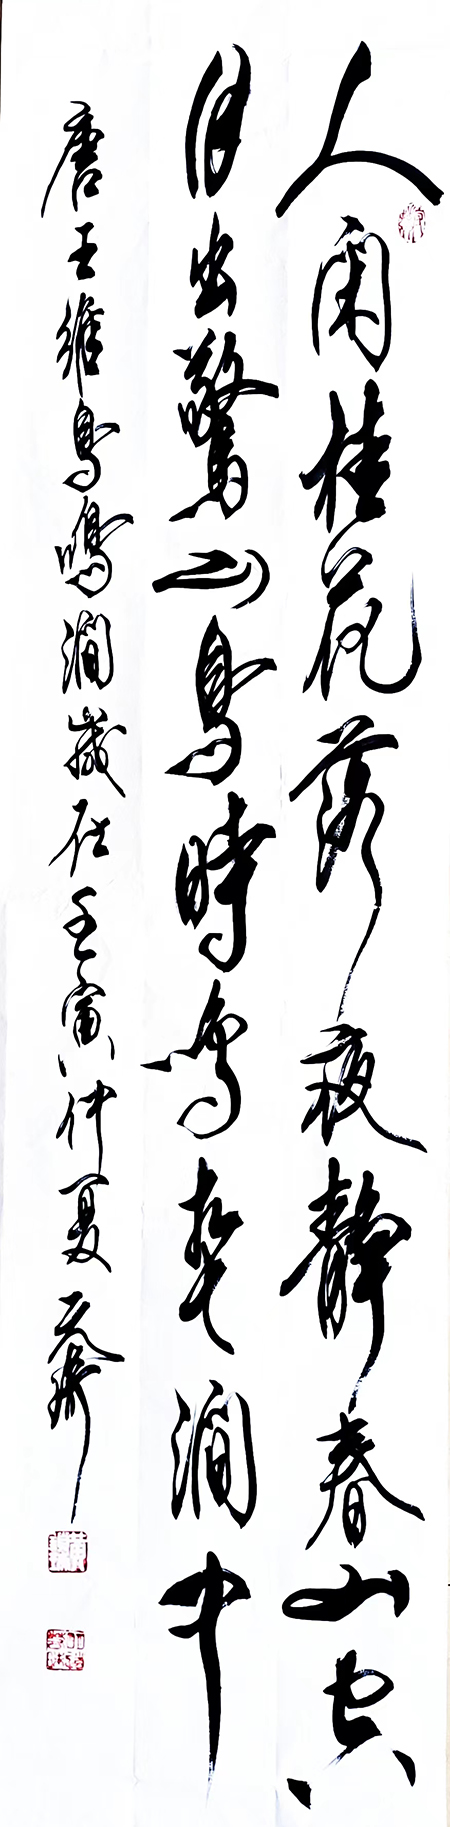 人闲桂花落夜静春山空
月出惊山鸟时鸣春涧中
唐王维鸟鸣涧岁在壬寅仲夏